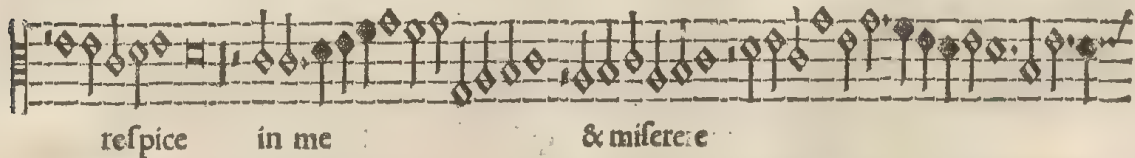 reſpice in me & miſerere